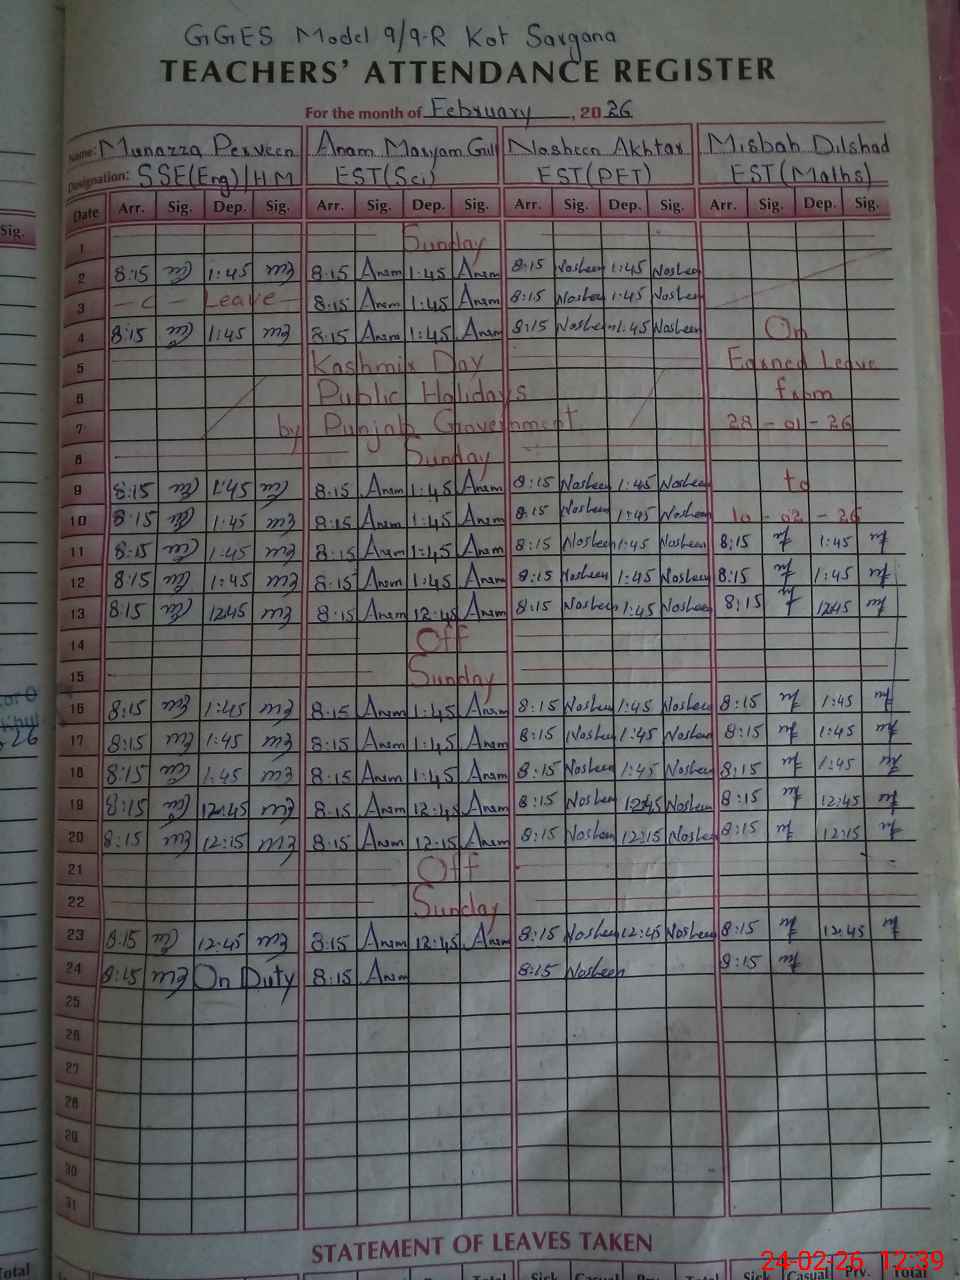 GGES Model 9/9-R Kot Sargana
TEACHERS' ATTENDANCE REGISTER
For the month of February, 2026
Name: Munazza Perveen Anam Maryam Gill Nosheen Akhtar Misbah Dilshad
Designation: SSE(Eng)/HM EST(Sci) EST(PET) EST(Maths)
Date Arr. Sig. Dep. Sig. Arr. Sig. Dep. Sig. Arr. Sig. Dep. Sig. Arr. Sig. Dep. Sig.
1 Sunday
2 8:15 1:45 8:15 Anam 1:45 Anam 8:15 Nosheen 1:45 Nosheen
3 - C - Leave - 8:15 Anam 1:45 Anam 8:15 Nosheen 1:45 Nosheen
4 8:15 1:45 8:15 Anam 1:45 Anam 8:15 Nosheen 1:45 Nosheen On
5 Kashmir Day Earned Leave
6 Public Holidays from
7 by Punjab Government 28-01-26
8 Sunday
9 8:15 1:45 8:15 Anam 1:45 Anam 8:15 Nosheen 1:45 Nosheen to
10 8:15 1:45 8:15 Anam 1:45 Anam 8:15 Nosheen 1:45 Nosheen 10-02-26
11 8:15 1:45 8:15 Anam 1:45 Anam 8:15 Nosheen 1:45 Nosheen 8:15 1:45
12 8:15 1:45 8:15 Anam 1:45 Anam 8:15 Nosheen 1:45 Nosheen 8:15 1:45
13 8:15 12:45 8:15 Anam 12:45 Anam 8:15 Nosheen 1:45 Nosheen 8:15 12:45
14 Off
15 Sunday
16 8:15 1:45 8:15 Anam 1:45 Anam 8:15 Nosheen 1:45 Nosheen 8:15 1:45
17 8:15 1:45 8:15 Anam 1:45 Anam 8:15 Nosheen 1:45 Nosheen 8:15 1:45
18 8:15 1:45 8:15 Anam 1:45 Anam 8:15 Nosheen 1:45 Nosheen 8:15 1:45
19 8:15 12:45 8:15 Anam 12:45 Anam 8:15 Nosheen 12:45 Nosheen 8:15 12:45
20 8:15 12:15 8:15 Anam 12:15 Anam 8:15 Nosheen 12:15 Nosheen 8:15 12:15
21 Off
22 Sunday
23 8:15 12:45 8:15 Anam 12:45 Anam 8:15 Nosheen 12:45 Nosheen 8:15 12:45
24 8:15 On Duty 8:15 Anam 8:15 Nosheen 8:15
25
26
27
28
29
30
31
STATEMENT OF LEAVES TAKEN
24-02-26 12:39
Total Total Sick Casual Prv. Total Sick Casual Prv. Total